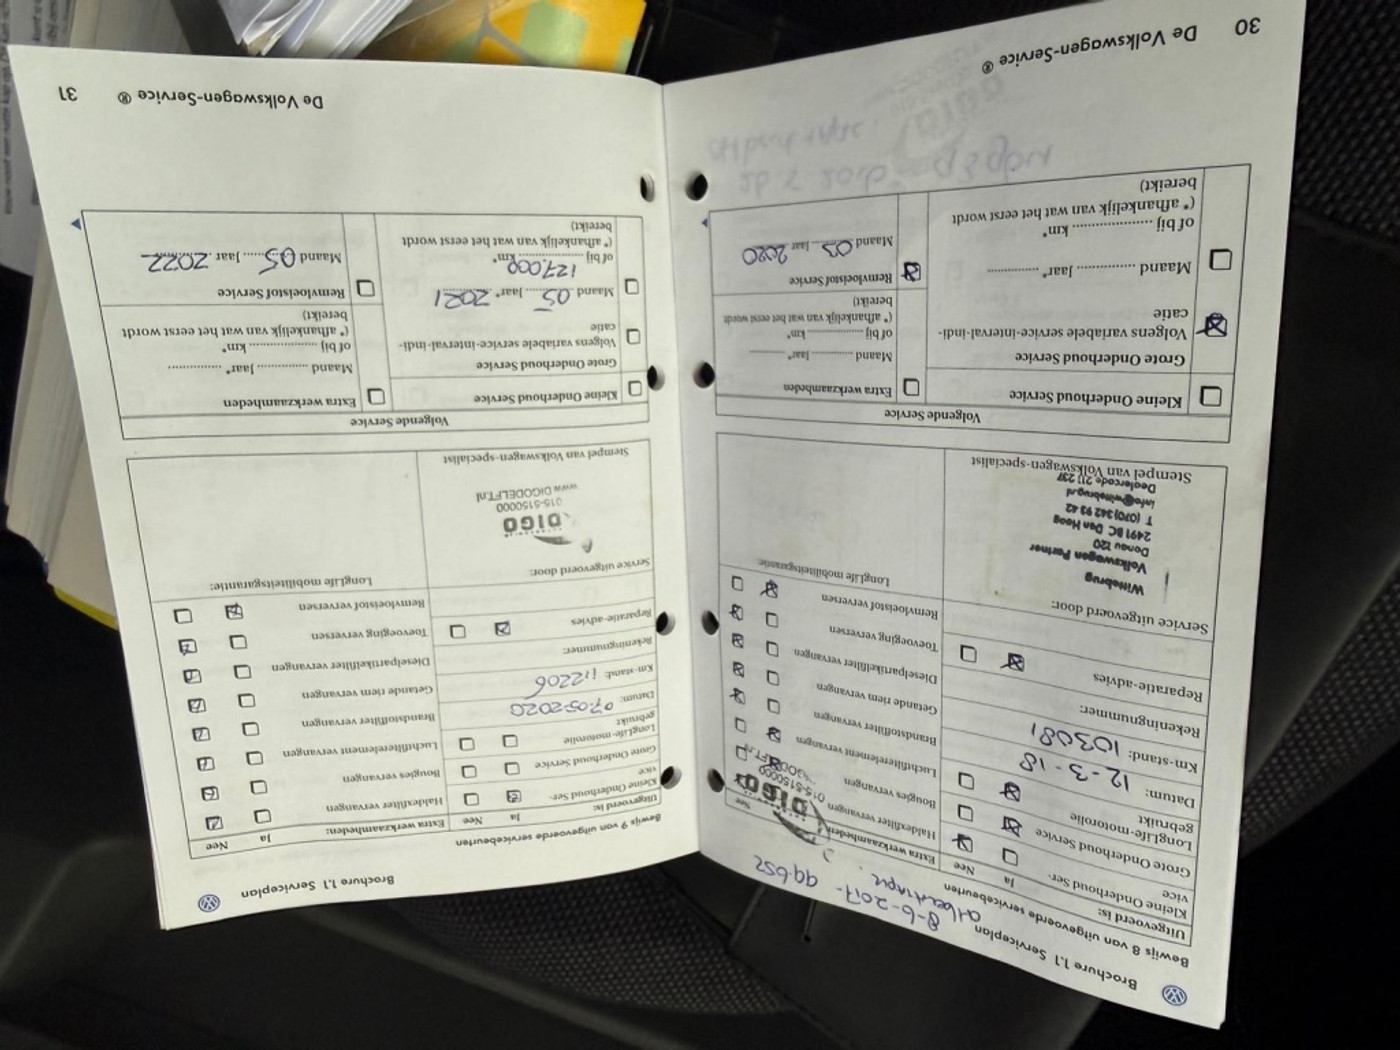 Brochure 1.1 Serviceplan
8-6-2017 - 99652
Bewijs 8 van uitgevoerde servicebeurten
Uitgevoerd is:
Ja
Nee
Kleine Onderhoud Ser-
vice
Grote Onderhoud Service
LongLife-motorolie
gebruikt
Datum: 12-3-18
Km-stand: 103081
Rekeningnummer:
Reparatie-advies
Service uitgevoerd door:
Wittebrug
Volkswagen Partner
Donau 120
2491 BC Den Haag
T (070) 342 93 42
info@wittebrug.nl
Dealercode 211 237
Stempel van Volkswagen-specialist
Extra werkzaamheden:
Nee
DIGO
015-5150000
Haldexfilter vervangen
Bougies vervangen
Luchtfilterelement vervangen
Brandstoffilter vervangen
Getande riem vervangen
Dieselpartikelfilter vervangen
Toevoeging verversen
Remvloeistof verversen
LongLife mobiliteitsgarantie:
Volgende Service
Kleine Onderhoud Service
Grote Onderhoud Service
Volgens variabele service-interval-indi-
catie
Maand .............. Jaar* ..............
of bij .............. km*
(* afhankelijk van wat het eerst wordt
bereikt)
Extra werkzaamheden
Maand .............. Jaar* ..............
of bij .............. km*
(* afhankelijk van wat het eerst wordt
bereikt)
Remvloeistof Service
Maand 03 Jaar 2020
De Volkswagen-Service ®
30
Brochure 1.1 Serviceplan
Bewijs 9 van uitgevoerde servicebeurten
Uitgevoerd is:
Ja
Nee
Kleine Onderhoud Ser-
vice
Grote Onderhoud Service
LongLife-motorolie
gebruikt
Datum: 07-05-2020
Km-stand: 112206
Rekeningnummer:
Reparatie-advies
Service uitgevoerd door:
DIGO
015-5150000
www.DIGODELFT.nl
Stempel van Volkswagen-specialist
Extra werkzaamheden:
Ja
Nee
Haldexfilter vervangen
Bougies vervangen
Luchtfilterelement vervangen
Brandstoffilter vervangen
Getande riem vervangen
Dieselpartikelfilter vervangen
Toevoeging verversen
Remvloeistof verversen
LongLife mobiliteitsgarantie:
Volgende Service
Kleine Onderhoud Service
Grote Onderhoud Service
Volgens variabele service-interval-indi-
catie
Maand 05 Jaar* 2021
of bij 127.000 km*
(* afhankelijk van wat het eerst wordt
bereikt)
Extra werkzaamheden
Maand .............. Jaar* ..............
of bij .............. km*
(* afhankelijk van wat het eerst wordt
bereikt)
Remvloeistof Service
Maand 05 Jaar 2022
De Volkswagen-Service ®
31